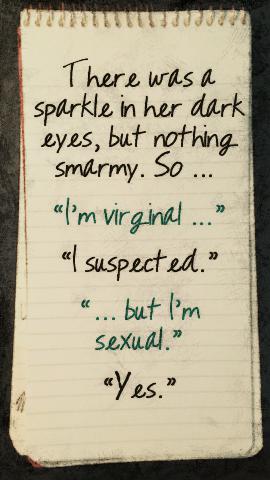 There was a
sparkle in her dark
eyes, but nothing
smarmy. So ...
“I'm virginal ...”
“I suspected.”
“... but I'm
sexual.”
“Yes.”